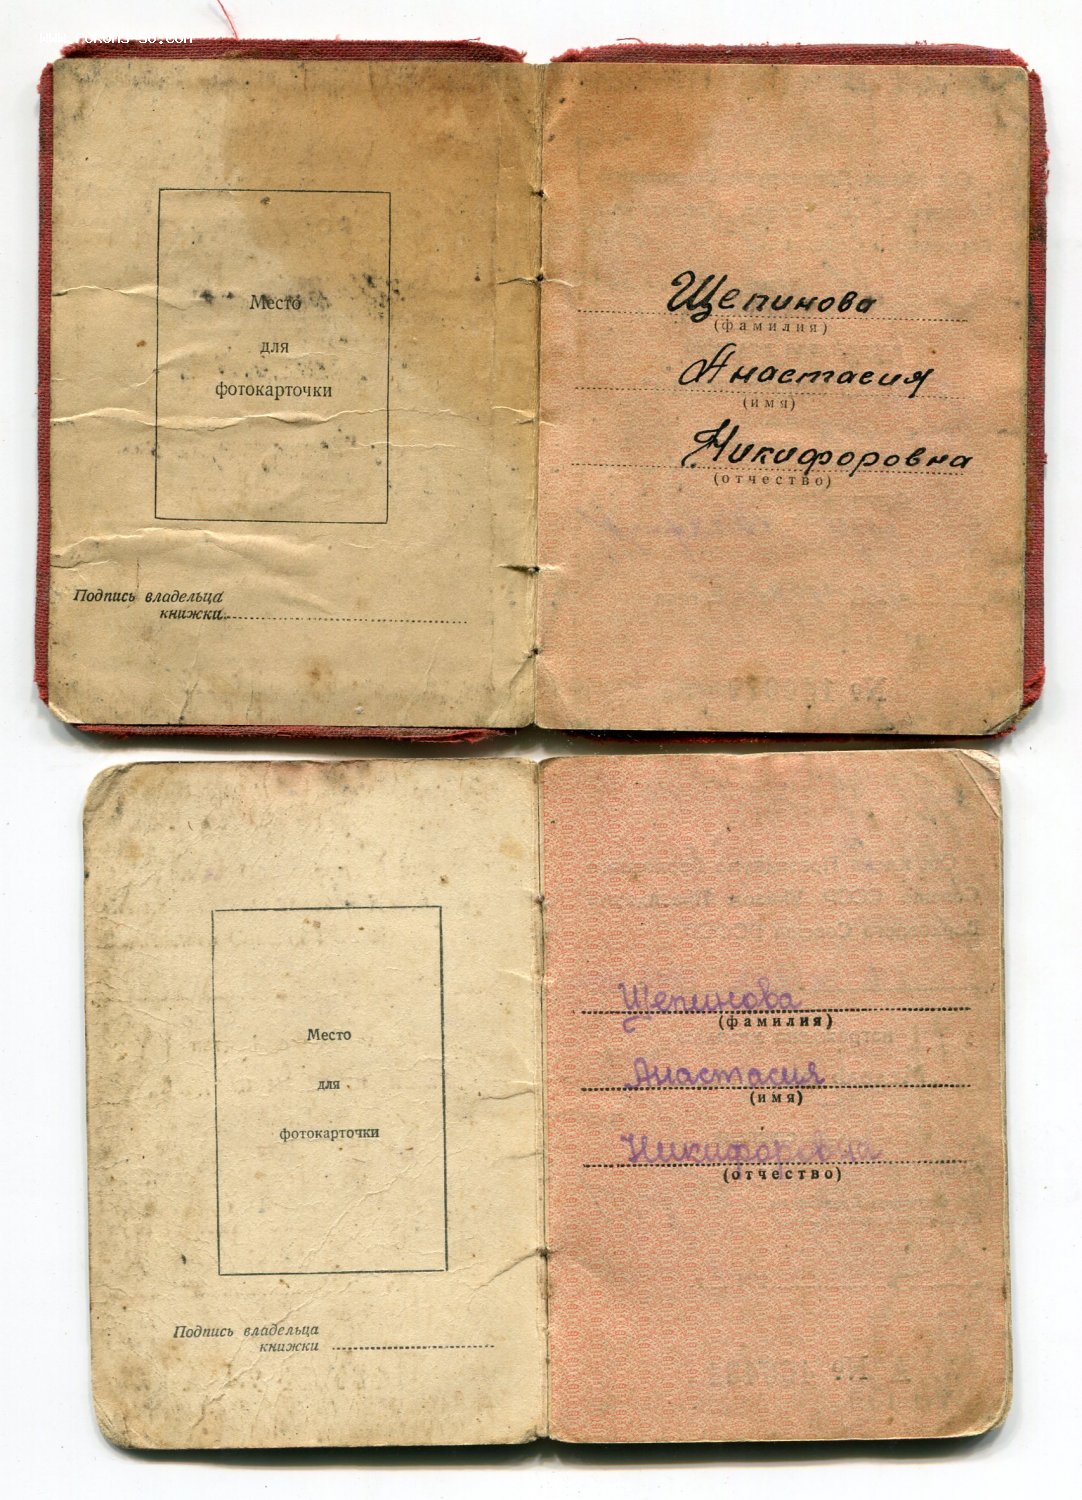 Место
для
фотокарточки
Подпись владельца
книжки
Щепинова
(фамилия)
Анастасия
(имя)
Никифоровна
(отчество)
Место
для
фотокарточки
Подпись владельца
книжки
Щепинова
(фамилия)
Анастасия
(имя)
Никифоровна
(отчество)